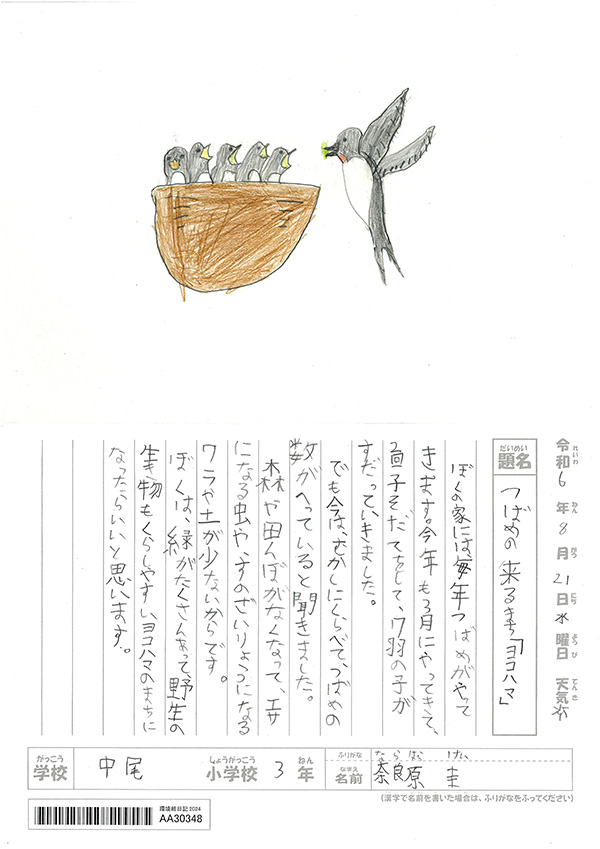 令和6年8月21日水曜日 天気
れいわ ねん がつ にち ようび てんき
だいめい
題名 つばめの来るまち「ヨコハマ」
ぼくの家には毎年つばめがやって
きます。今年も3月にやってきて、
子そだてをして、7羽の子が
すだっていきました。
でも今は、むかしにくらべて、つばめの
数がへっていると聞きました。
森や田んぼがなくなって、エサ
になる虫や、すのざいりょうになる
ワラや土が少ないからです。
ぼくは、緑がたくさんあって、野生の
生き物もくらしやすいヨコハマのまちに
なったらいいと思います。
がっこう しょうがっこう ねん ふりがな ならはら けい
学校 中尾 小学校 3年 なまえ 名前 奈良原 圭
(漢字で名前を書いた場合は、ふりがなをふってください)
環境絵日記2024
AA30348